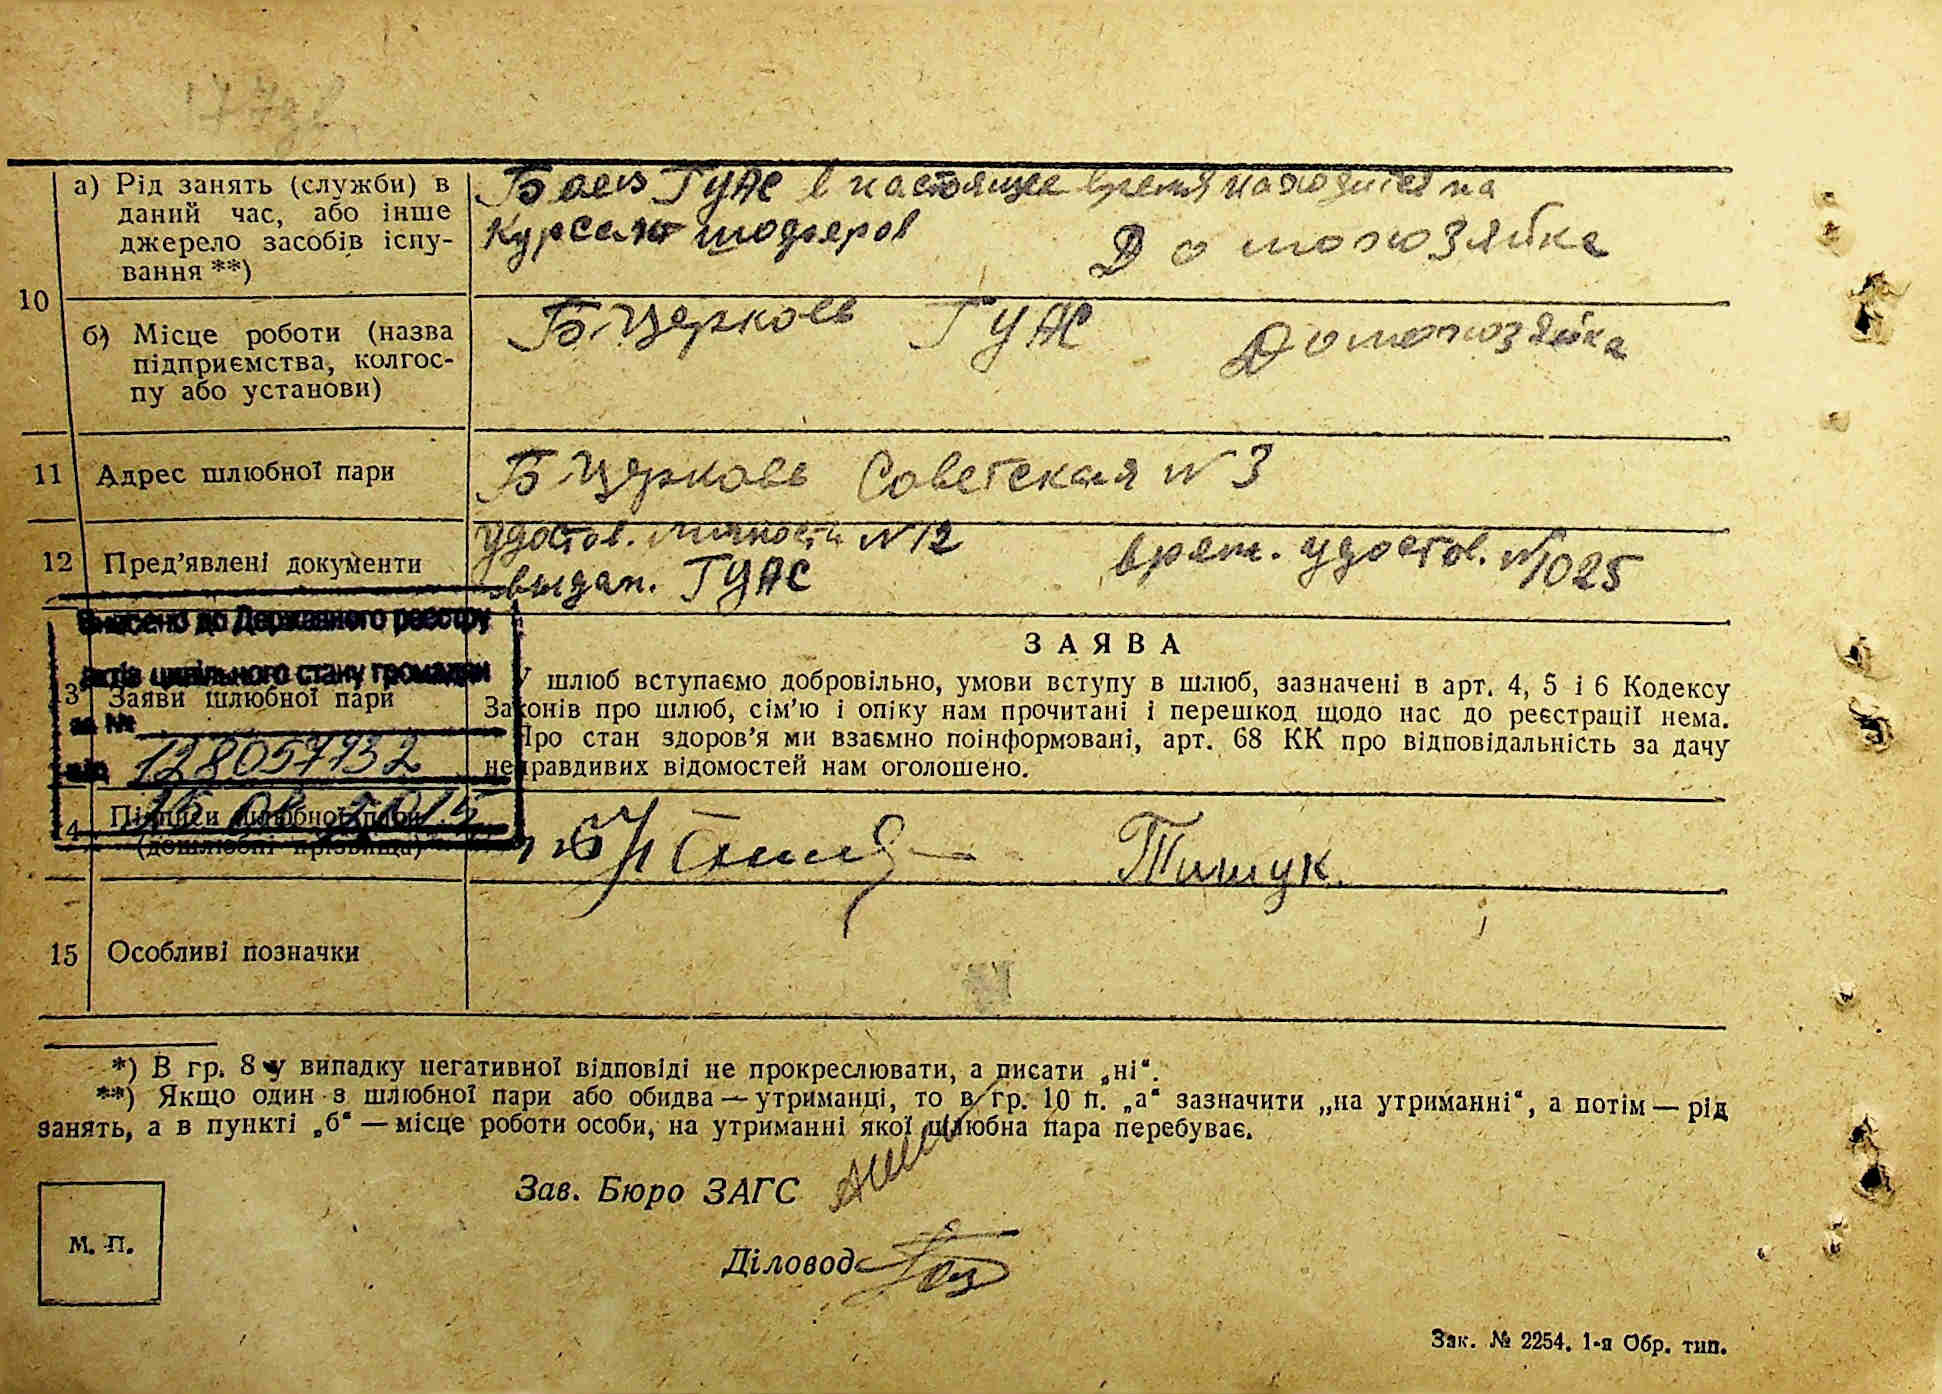 а) Рід занять (служби) в
даний час, або інше
джерело засобів існу-
вання **)
Боец ГУАС в настоящее время находится на
курсах шоферов
Домохозяйка
10
б) Місце роботи (назва
підприємства, колгос-
пу або установи)
Б. Церковь ГУАС Домохозяйка
11 Адрес шлюбної пари
Б Церковь Советская № 3
12 Пред'явлені документи
удостов. личности № 12
выдан. ГУАС
врем. удостов. № 1025
Внесено до Державного реєстру
актів цивільного стану громадян
за №
128057932
від
3 Заяви шлюбної пари
ЗАЯВА
У шлюб вступаємо добровільно, умови вступу в шлюб, зазначені в арт. 4, 5 і 6 Кодексу
Законів про шлюб, сім'ю і опіку нам прочитані і перешкод щодо нас до реєстрації нема.
Про стан здоров'я ми взаємно поінформовані, арт. 68 КК про відповідальність за дачу
неправдивих відомостей нам оголошено.
4 Підписи шлюбної пари
(дошлюбні прізвища)
Тишук.
15 Особливі позначки
*) В гр. 8 у випадку негативної відповіді не прокреслювати, а писати „ні“.
**) Якщо один з шлюбної пари або обидва — утриманці, то в гр. 10 п. „а“ зазначити „на утриманні“, а потім — рід
занять, а в пункті „б“ — місце роботи особи, на утриманні якої шлюбна пара перебуває.
Зав. Бюро ЗАГС
М. П.
Діловод
Зак. № 2254. 1-я Обр. тип.